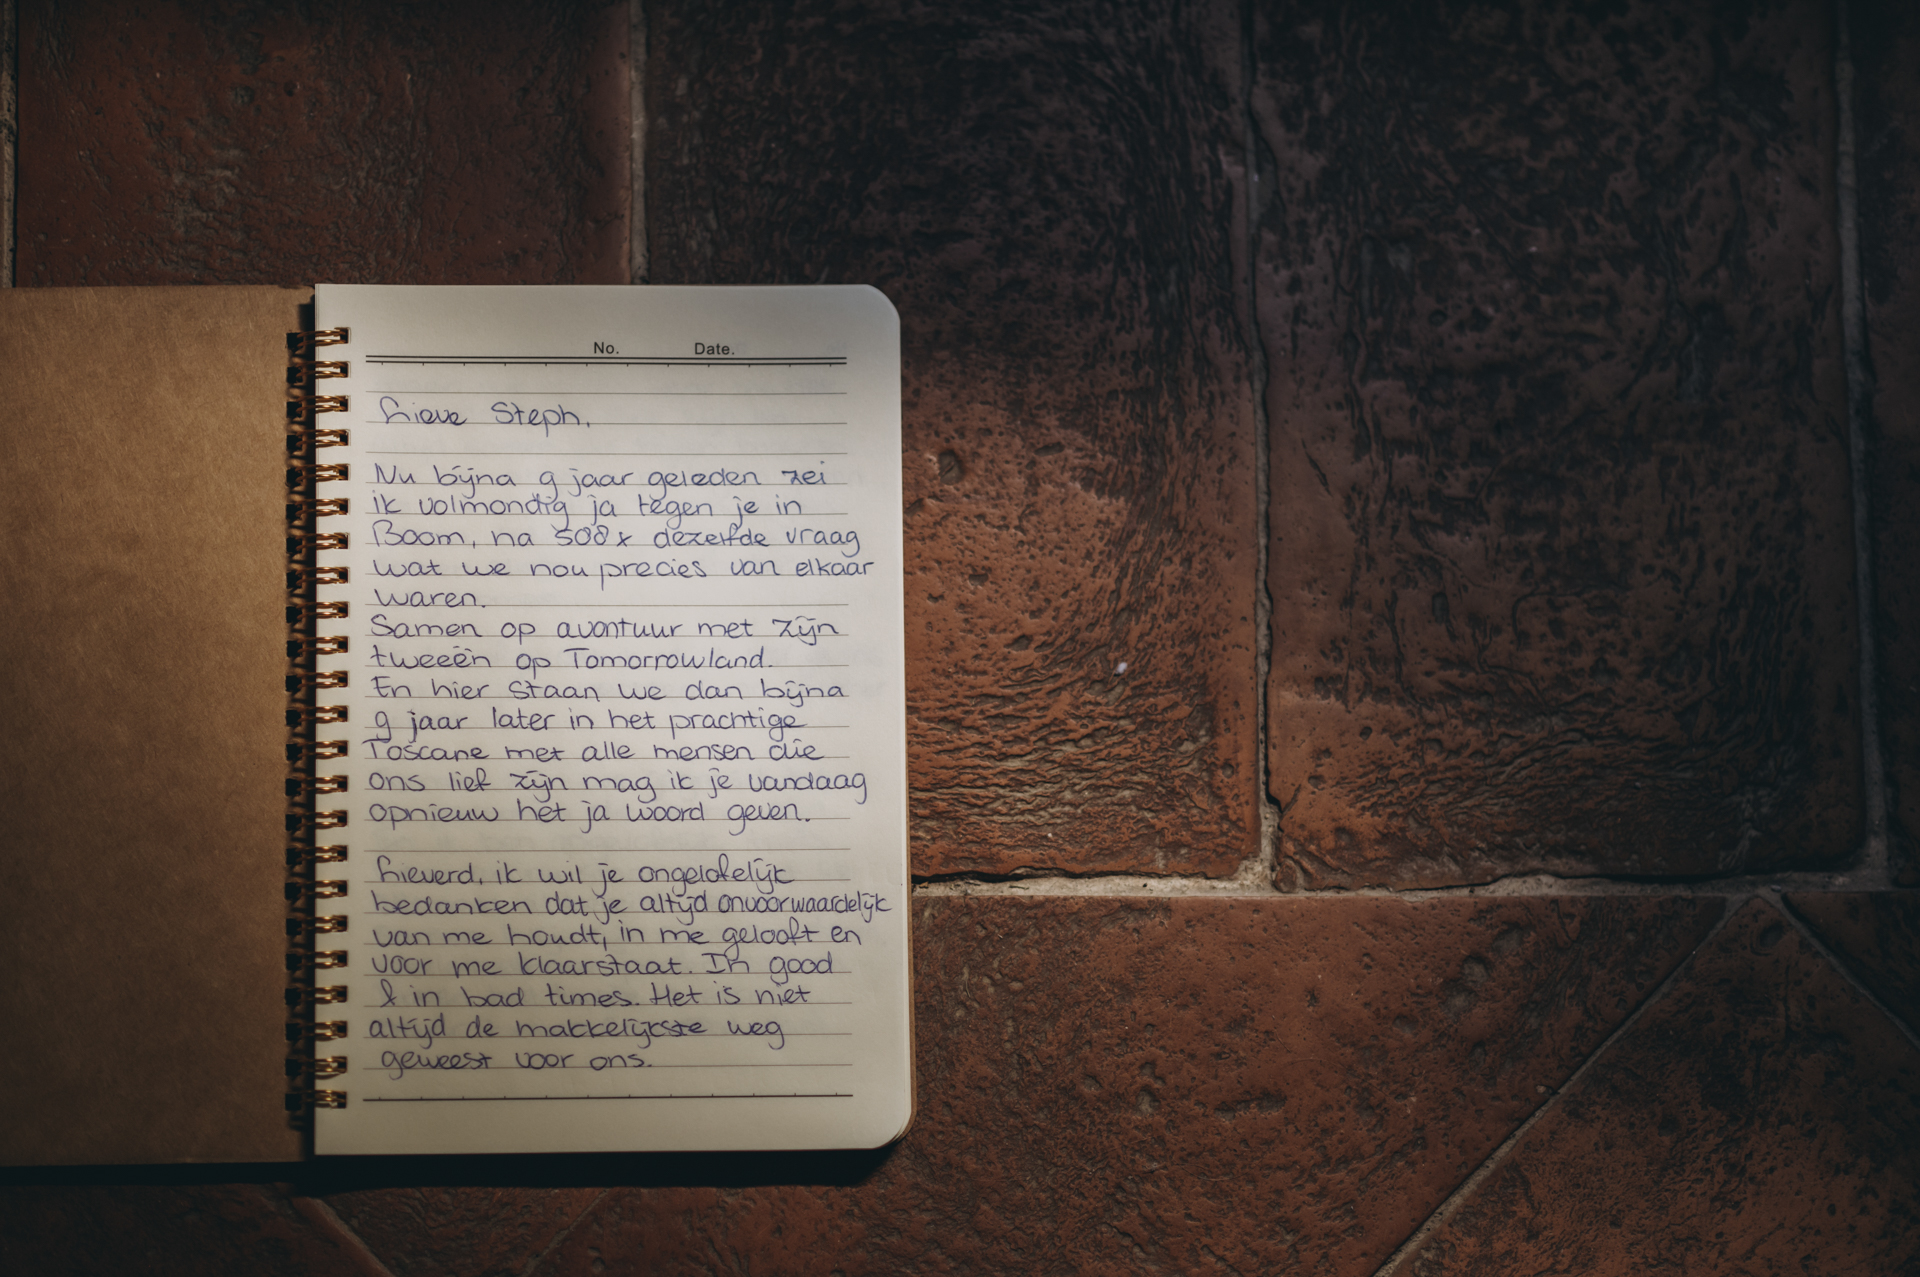 No. Date.
Lieve Steph,
Nu bijna 9 jaar geleden zei
ik volmondig ja tegen je in
Boom, na 508x dezelfde vraag
wat we nou precies van elkaar
waren.
Samen op avontuur met zijn
tweeën op Tomorrowland.
En hier staan we dan bijna
9 jaar later in het prachtige
Toscane met alle mensen die
ons lief zijn mag ik je vandaag
opnieuw het ja woord geven.
Lieverd, ik wil je ongelofelijk
bedanken dat je altijd onvoorwaardelijk
van me houdt, in me gelooft en
voor me klaarstaat. In good
& in bad times. Het is niet
altijd de makkelijkste weg
geweest voor ons.